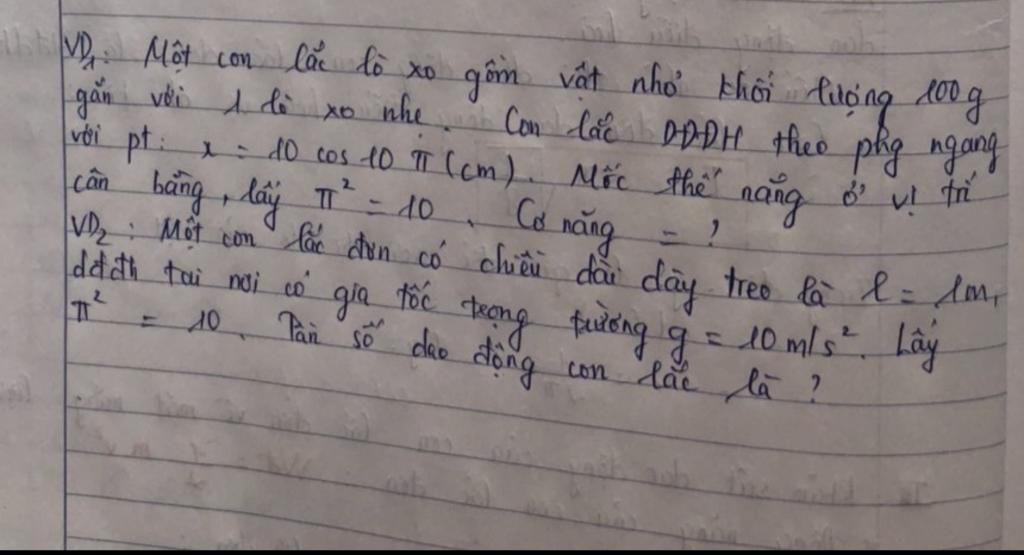 VD₁: Một con lắc lò xo gồm vật nhỏ khối lượng 100g
gắn với 1 lò xo nhẹ. Con lắc DĐĐH theo phg ngang
với pt: x = 10 cos 10 π (cm). Mốc thế năng ở vị trí
cân bằng, lấy π² = 10. Cơ năng = ?
VD₂: Một con lắc đơn có chiều dài dây treo là l = 1m,
dđđh tại nơi có gia tốc trọng trường g = 10 m/s². Lấy
π² = 10. Tần số dao động con lắc là ?